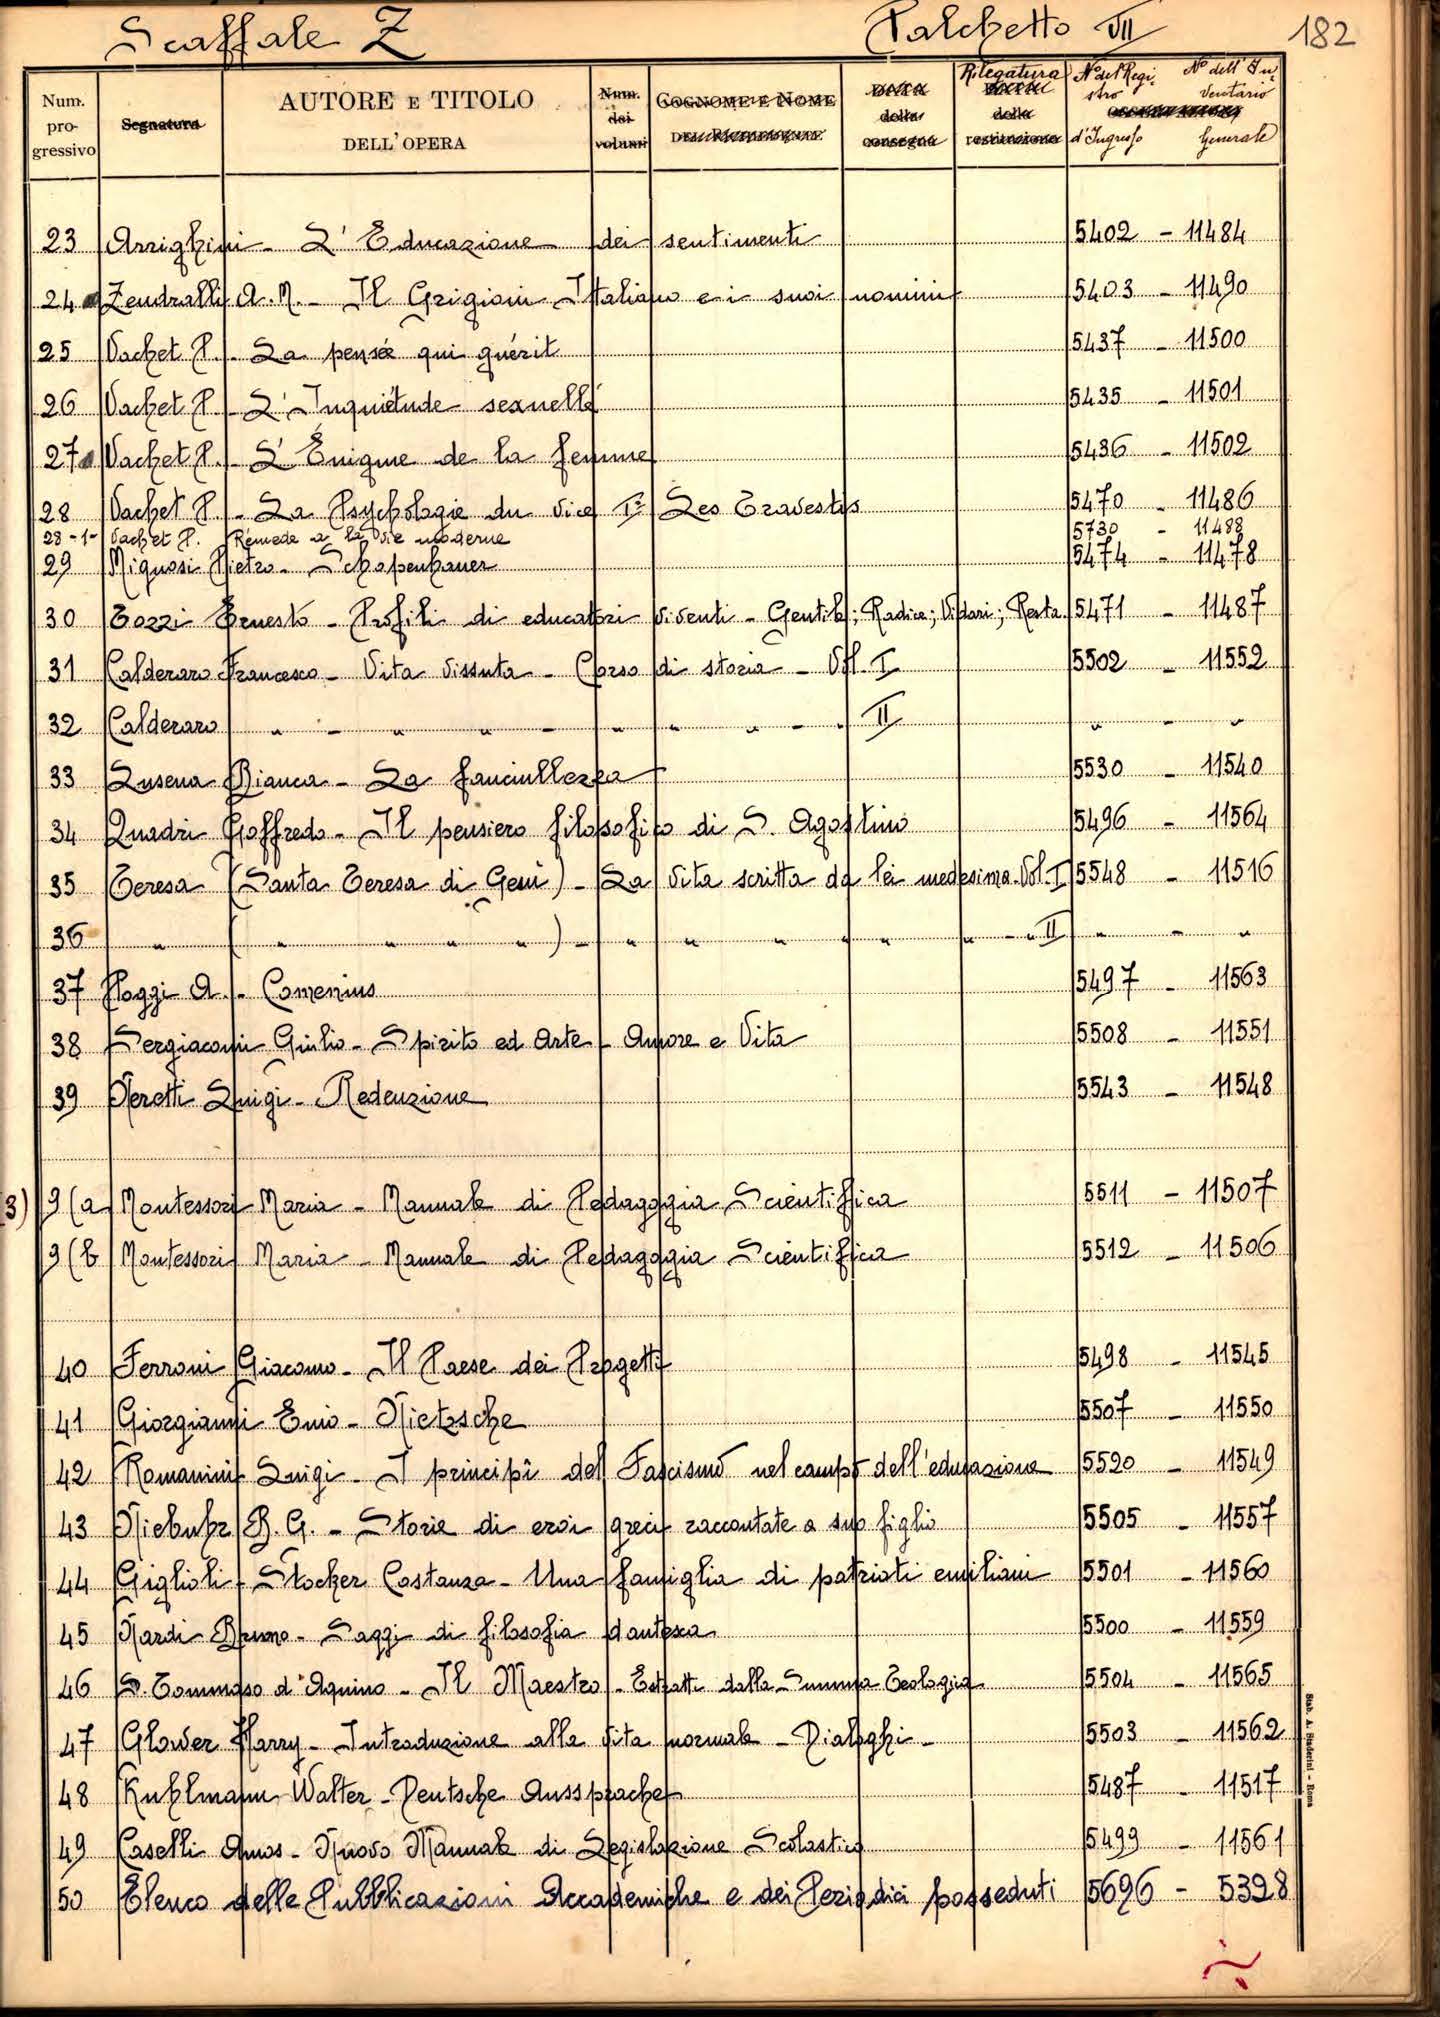 Scaffale Z Palchetto VII 182
Num. progressivo Segnatura AUTORE E TITOLO DELL'OPERA Num. dei volumi COGNOME E NOME DATA della consegna Rilegatura della restituzione N° del Registro d'Ingresso N° dell'Inventario Generale
23 Arrighini - L'Educazione dei sentimenti 5402 - 11484
24 Zendralli A.M. - Il Grigioni Italiano e i suoi uomini 5403 - 11490
25 Vachet P. - La pensée qui guérit 5437 - 11500
26 Vachet P. - L'Inquiétude sexuelle 5435 - 11501
27 Vachet P. - L'Énigme de la femme 5436 - 11502
28 Vachet P. - La Psychologie du vice I° Les Travestis 5470 - 11486
28-1- Vachet P. Rémede a la vie moderne 5730 - 11488
29 Mignosi Pietro - Schopenhauer 5474 - 11478
30 Tozzi Ernesto - Profili di educatori viventi - Gentile; Radice; Vidari; Resta 5471 - 11487
31 Calderaro Francesco - Vita vissuta - Corso di storia - Vol. I 5502 - 11552
32 Calderaro " - " " - " " " - - " II " - "
33 Lusena Bianca - La fanciullezza 5530 - 11540
34 Quadri Goffredo - Il pensiero filosofico di S. Agostino 5496 - 11564
35 Teresa (Santa Teresa di Gesù) - La Vita scritta da lei medesima - Vol. I 5548 - 11516
36 " ( " " " " ) - " " " " " " - " II " - "
37 Poggi A. - Comenius 5497 - 11563
38 Sergiacomi Giulio - Spirito ed Arte - Amore e Vita 5508 - 11551
39 Neretti Luigi - Redenzione 5543 - 11548
3) 9 (a Montessori Maria - Manuale di Pedagogia Scientifica 5511 - 11507
9 (b Montessori Maria - Manuale di Pedagogia Scientifica 5512 - 11506
40 Ferroni Giacomo - Il Paese dei Progetti 5498 - 11545
41 Giorgianni Enio - Nietzsche 5507 - 11550
42 Romanini Luigi - I principî del Fascismo nel campo dell'educazione 5520 - 11549
43 Niebuhr B.G. - Storie di eroi greci raccontate a suo figlio 5505 - 11557
44 Giglioli - Stocker Costanza - Una famiglia di patrioti emiliani 5501 - 11560
45 Nardi Bruno - Saggi di filosofia dantesca 5500 - 11559
46 S. Tommaso d'Aquino - Il Maestro - Estratti dalla Summa Teologica 5504 - 11565
47 Glover Harry - Introduzione alla vita normale - Dialoghi - 5503 - 11562
48 Kuhlmann Walter - Deutsche Aussprache 5487 - 11517
49 Caselli Amos - Nuovo Manuale di Legislazione Scolastica 5499 - 11561
50 Elenco delle Pubblicazioni Accademiche e dei Periodici posseduti 5696 - 5398
Stab. A. Staderini - Roma